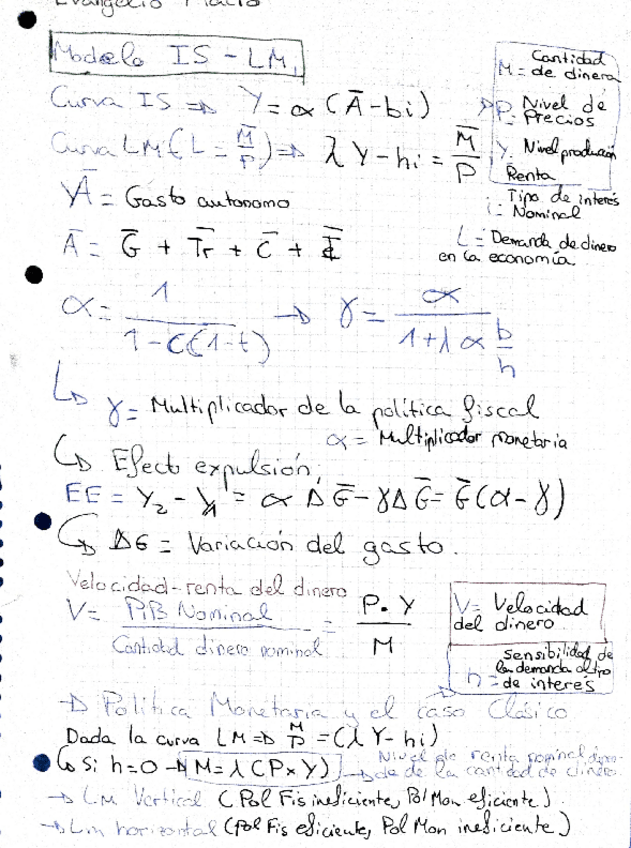 Modelo IS - LM
Cantidad
M = de dinero
Curva IS => Y = α (Ā - bi)
P = Nivel de
Precios
Curva LM (L = M̄/P) => λ Y - hi = M̄/P
Y = Nivel producción
Renta
Ā = Gasto autonomo
Tipo de interés
i = Nominal
Ā = Ḡ + T̄r + C̄ + Ī
L = Demanda de dinero
en la economía.
α = 1/(1-c(1-t)) → γ = α/(1+λ α b/h)
↳ γ = Multiplicador de la política fiscal
α = Multiplicador monetaria
↳ Efecto expulsión;
EE = Y₂ - Y₁' = α Δ Ḡ - γ Δ Ḡ = Ḡ (α - γ)
↳ ΔG = Variación del gasto.
Velocidad-renta del dinero
V = PIB Nominal / Cantidad dinero nominal = P. Y / M
V = Velocidad
del dinero
Sensibilidad de
la demanda al tipo
h = de interés
→ Política Monetaria y el caso Clásico
Dada la curva LM => M/P = (λ Y - hi)
↳ Si h = 0 → M = λ (P x Y) → Nivel de renta nominal depen-
de de la cantidad de dinero.
→ Lm Vertical (Pol Fis ineficiente, Pol Mon eficiente).
→ Lm horizontal (Pol Fis eficiente, Pol Mon ineficiente)